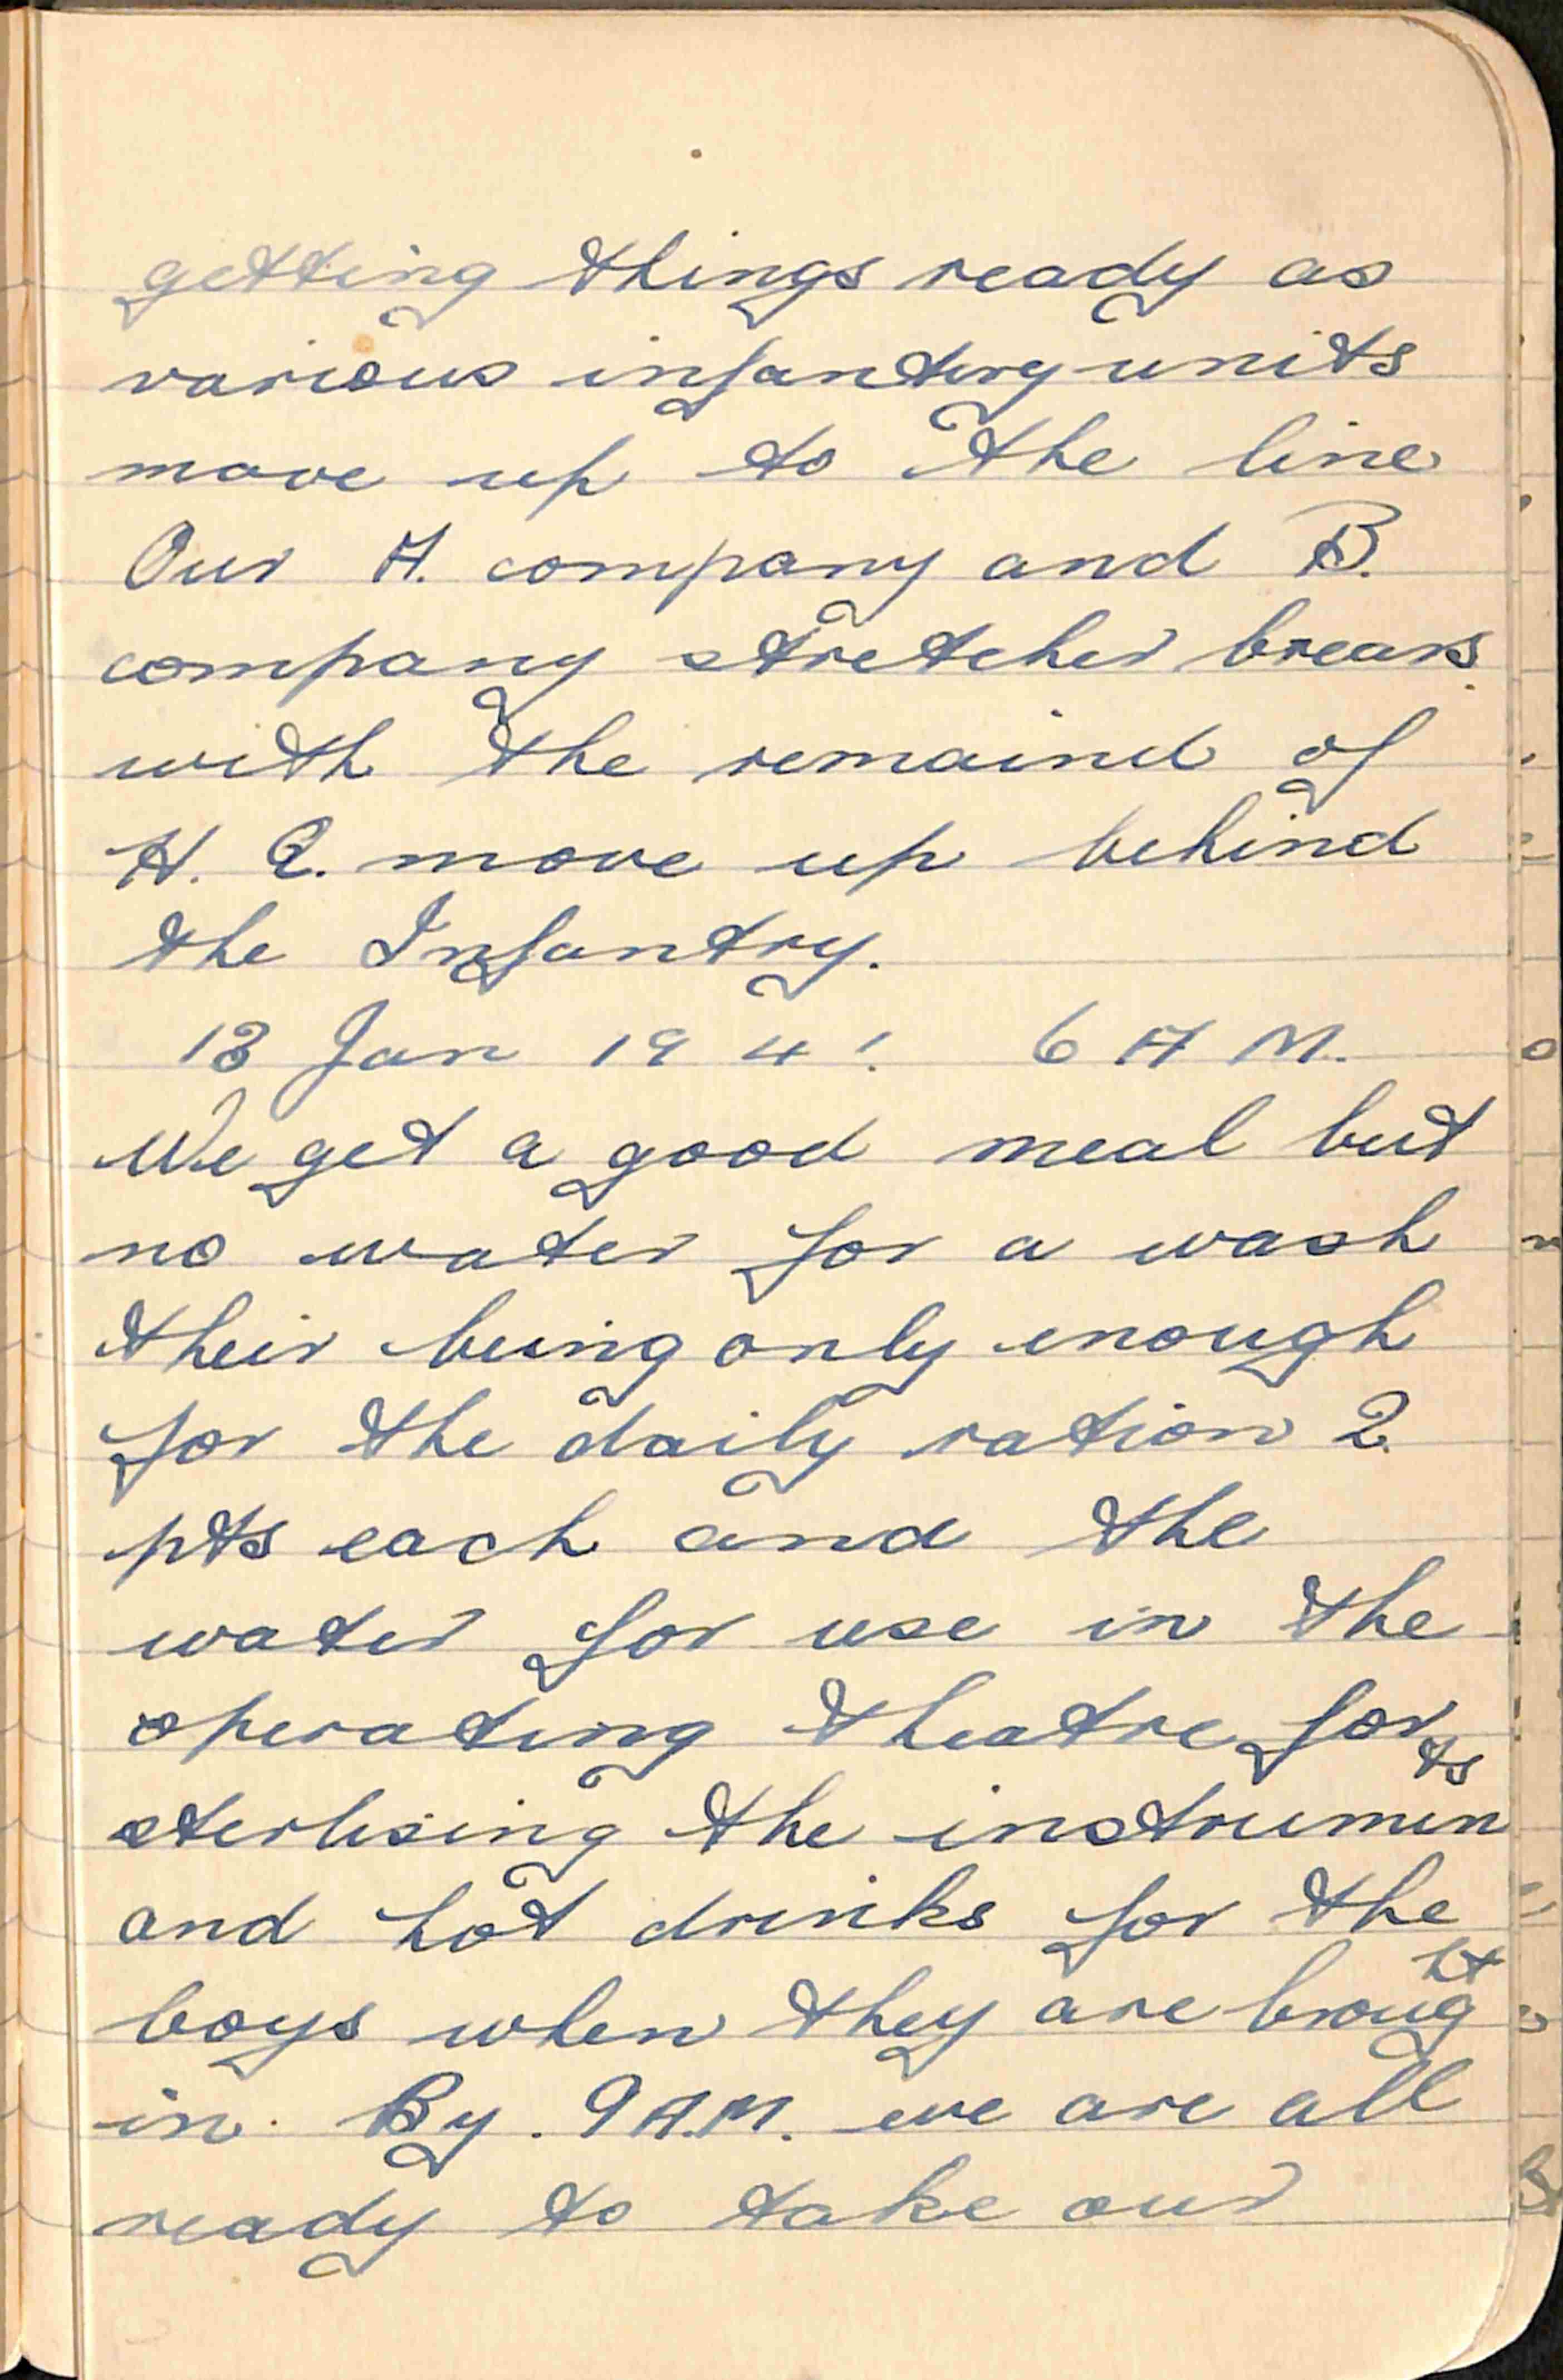 getting things ready as
various infantry units
move up to the line
Our A. company and B.
company stretcher brears
with the remaind of
H. Q. move up behind
the Infantry.
13 Jan 1941 6 A M.
We get a good meal but
no water for a wash
their being only enough
for the daily ration 2
pts each and the
water for use in the
operating theatre for
sterlising the instruments
and hot drinks for the
boys when they are brought
in. By. 9 A.M. we are all
ready to take our